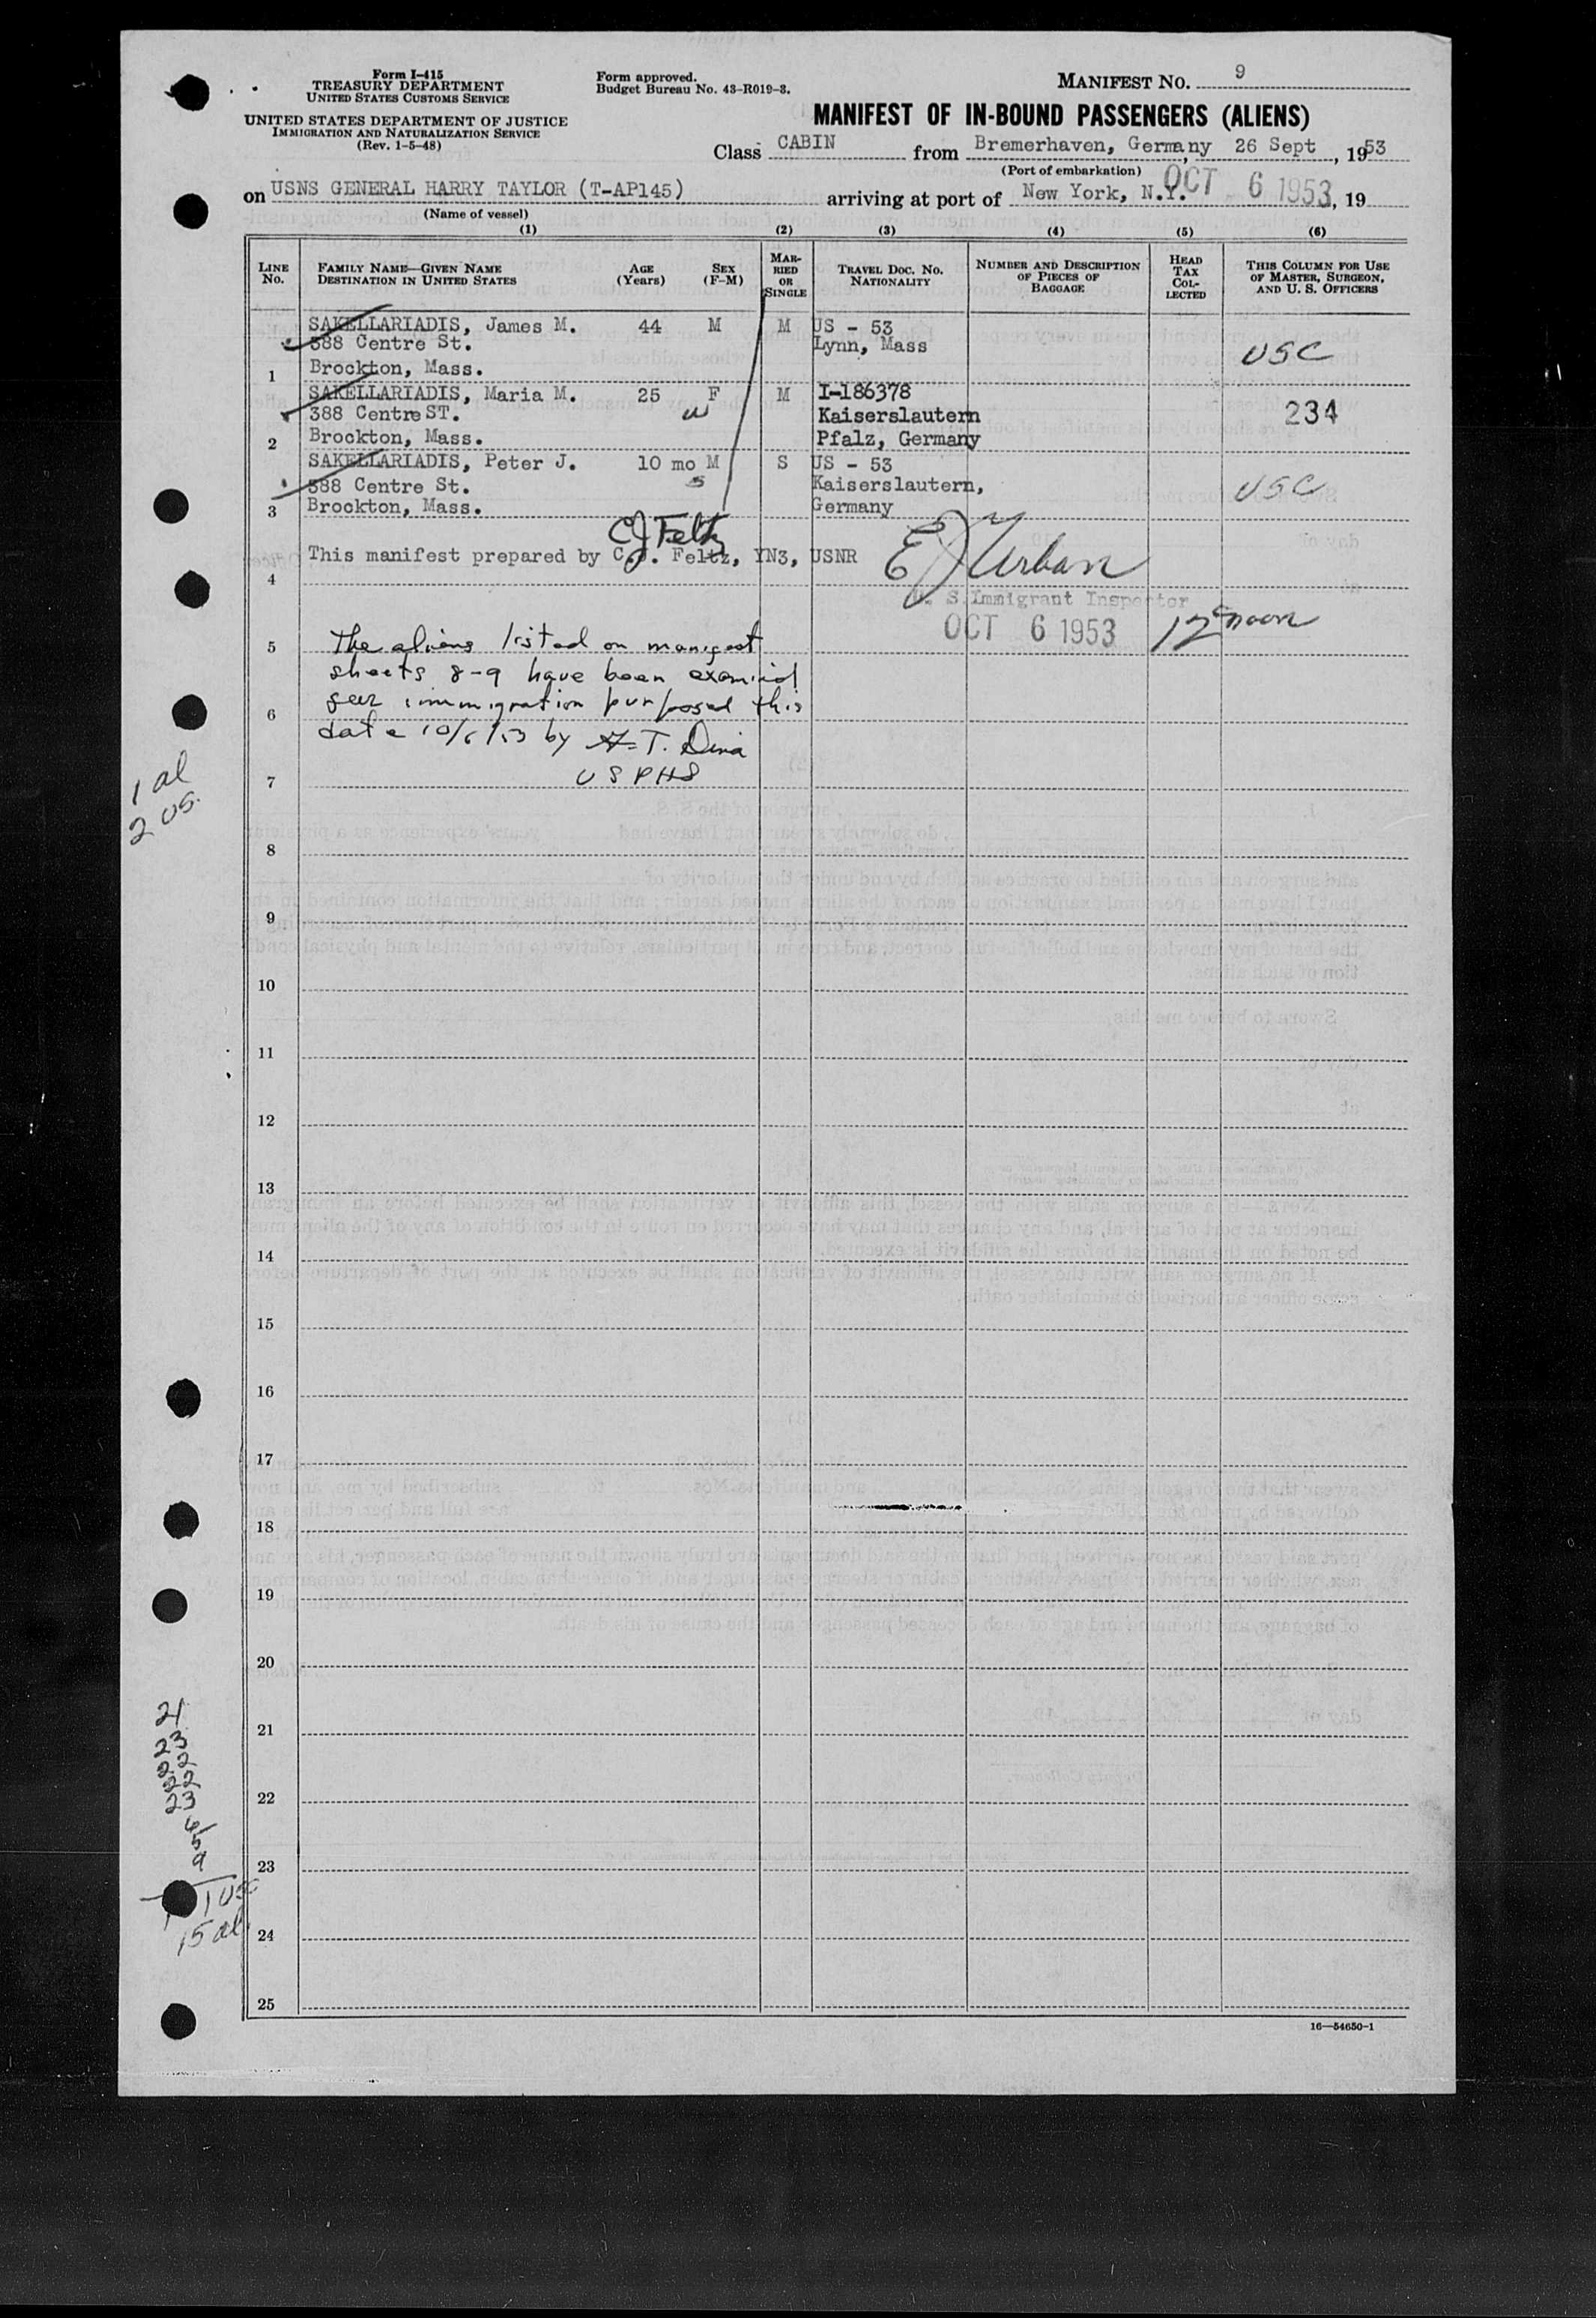 Form I-415
TREASURY DEPARTMENT
UNITED STATES CUSTOMS SERVICE
UNITED STATES DEPARTMENT OF JUSTICE
IMMIGRATION AND NATURALIZATION SERVICE
(Rev. 1-5-48)
Form approved.
Budget Bureau No. 43-R019-3.
MANIFEST NO. 9
MANIFEST OF IN-BOUND PASSENGERS (ALIENS)
Class CABIN from Bremerhaven, Germany, 26 Sept, 1953
(Port of embarkation)
on USNS GENERAL HARRY TAYLOR (T-AP145) arriving at port of New York, N.Y. OCT 6 1953, 19
(Name of vessel)
(1) (2) (3) (4) (5) (6)
LINE NO. FAMILY NAME—GIVEN NAME DESTINATION IN UNITED STATES AGE (Years) SEX (F-M) MARRIED OR SINGLE TRAVEL DOC. NO. NATIONALITY NUMBER AND DESCRIPTION OF PIECES OF BAGGAGE HEAD TAX COLLECTED THIS COLUMN FOR USE OF MASTER, SURGEON, AND U. S. OFFICERS
SAKELLARIADIS, James M. 44 M M US - 53
388 Centre St. Lynn, Mass USC
1 Brockton, Mass.
SAKELLARIADIS, Maria M. 25 F M I-186378
388 Centre ST. w Kaiserslautern 234
2 Brockton, Mass. Pfalz, Germany
SAKELLARIADIS, Peter J. 10 mo M S US - 53
388 Centre St. s Kaiserslautern, USC
3 Brockton, Mass. Germany
CJ Feltz
This manifest prepared by C.J. Feltz, YN3, USNR E J Urban
4
U. S. Immigrant Inspector
OCT 6 1953 12 noon
5 The aliens listed on manifest
sheets 8-9 have been examined
6 for immigration purposes this
date 10/6/53 by T.
USPHS
7
1 al
2 us.
8
9
10
11
12
13
14
15
16
17
18
19
20
21
22
23
24
25
21
23
22
22
23
6
5
9
1 USC
15 al
16—54650-1